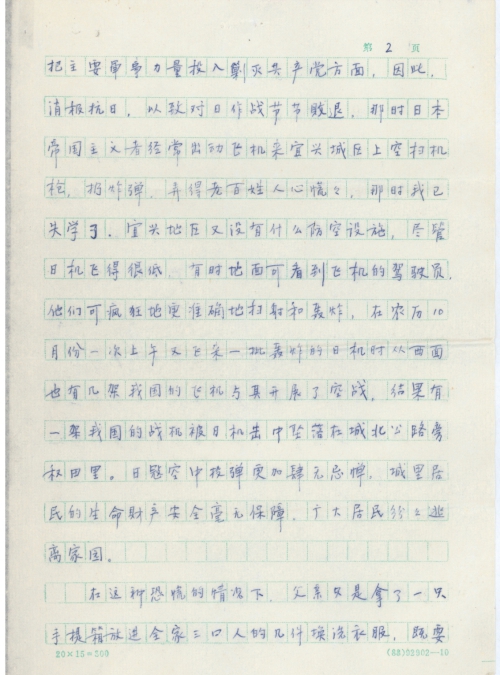 第 2 页
把主要军事力量投入剿灭共产党方面，因此，
消极抗日，以致对日作战节节败退，那时日本
帝国主义者经常出动飞机来宜兴城区上空扫机
枪，扔炸弹，弄得老百姓人心慌々，那时我已
失学了，宜兴地区又没有什么防空设施，尽管
日机飞得很低，有时地面可看到飞机的驾驶员，
他们可疯狂地更准确地扫射和轰炸，在农历10
月份一次上午又飞来一批轰炸的日机时从西面
也有几架我国的飞机与其开展了空战，结果有
一架我国的战机被日机击中坠落在城北公路旁
秋田里。日寇空中投弹更加肆无忌惮，城里居
民的生命财产安全毫无保障，广大居民纷々逃
离家园。
在这种恐慌的情况下，父亲只是拿了一只
手提箱放进全家三口人的几件换洗衣服，既要
20×15=300
(88)02902—10